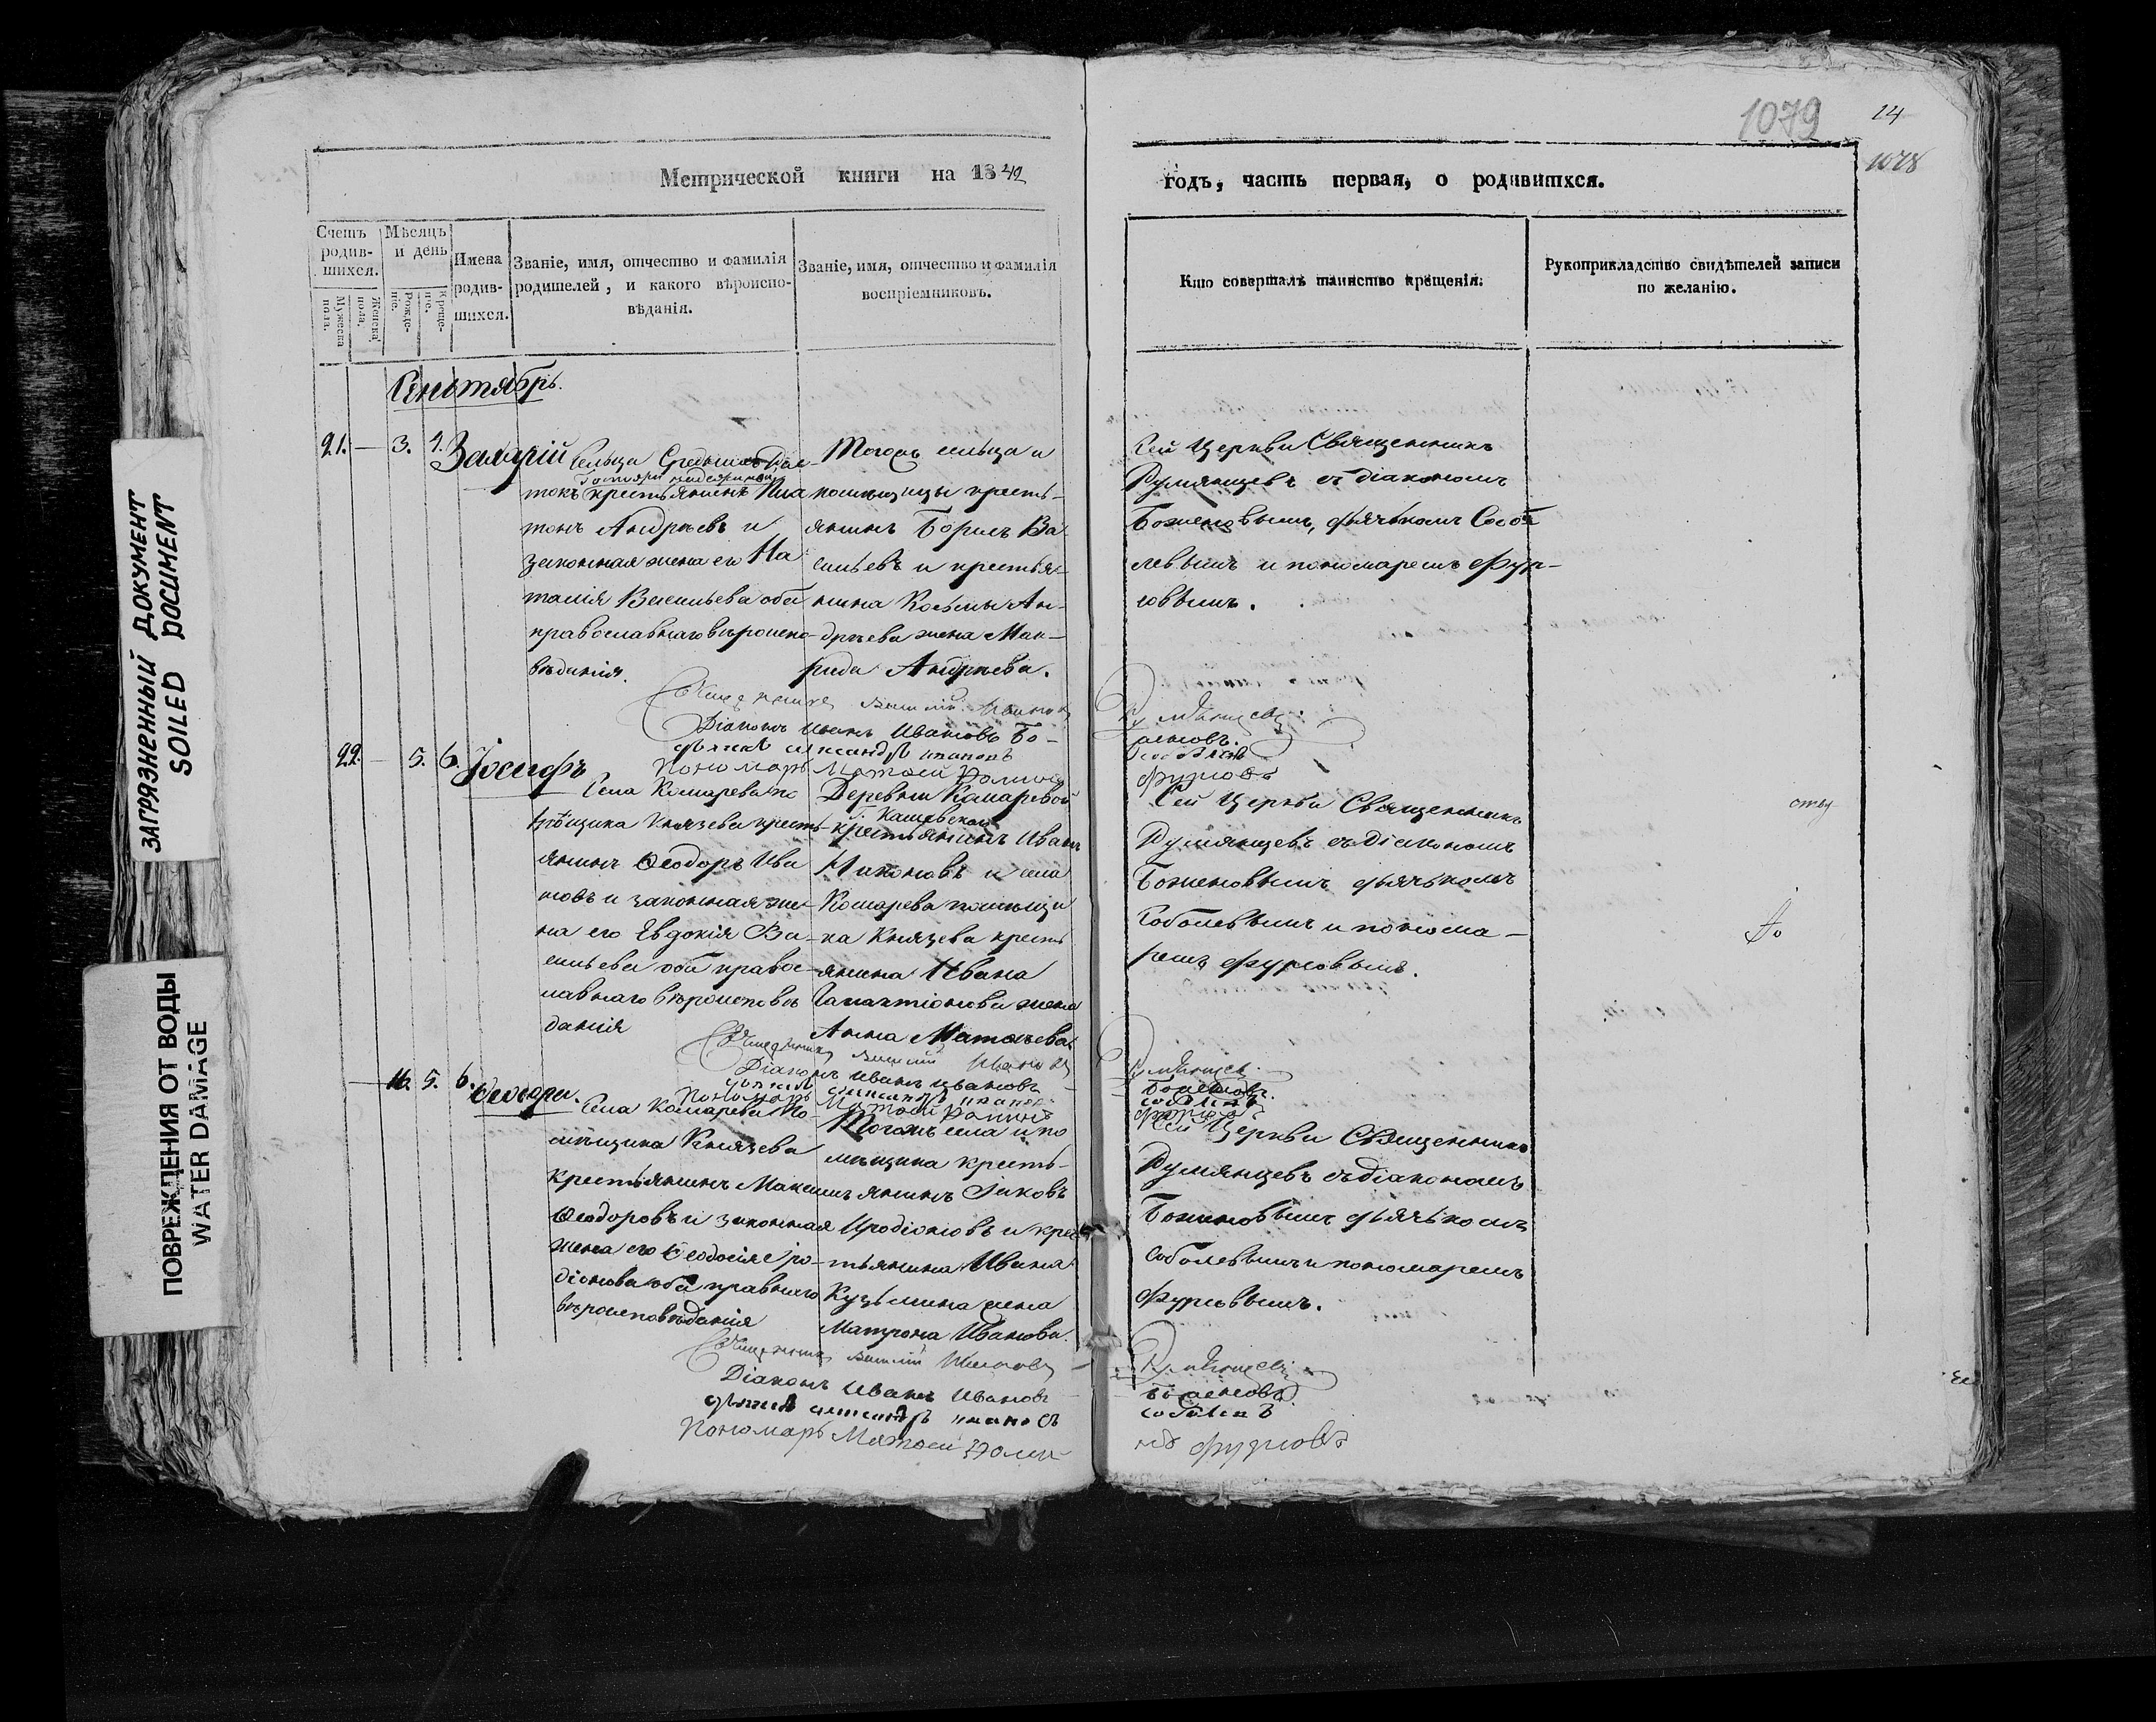 1079
14
1078
Метрической книги на 1842
годъ, часть первая, о родившихся.
Счетъ родив-шихся.
Мужеска пола.
Женска пола.
Мѣсяцъ и день
Рожде-нiе.
Креще-нiе.
Имена родив-шихся.
Званiе, имя, отчество и фамилiя
родителей, и какого вѣроиспо-
вѣданiя.
Званiе, имя, отчество и фамилiя
воспрiемниковъ.
Кто совершалъ таинство крещенiя.
Рукоприкладство свидѣтелей записи
по желанiю.
Сентябрь.
21. — 3.
Захарiй
Сельца
крестьянинъ Пла
тонъ Андреевъ и
законная жена его На
талiя Васильева оба
православнаго вѣроиспо
вѣданiя.
Тогожъ сельца и
помещицы кресть-
янинъ Борисъ Ва
сильевъ и крестья-
нина Косьмы Ан-
дреева жена Мав-
ра Андреева.
Сей Церкви Священникъ
Румянцевъ съ дiакономъ
Боженовымъ, дьячкомъ Собо
левымъ и пономаремъ Фур-
совымъ.
Священникъ Василiй Ивановъ Румянцевъ
Дiаконъ Иванъ Ивановъ Бо-женовъ.
дьячекъ Александръ Ивановъ Соболевъ
Пономарь Матѳей
22. — 5. 6.
Iосифъ
Села Комарева по
мѣщика Князева кресть-
янинъ Ѳеодоръ Ива
новъ и законная же-
на его Евдокiя Ва-
сильева оба правос-
лавнаго вѣроисповѣ
данiя
Деревни Комаревой
крестьянинъ Иванъ
Никоновъ и села
Комарева помѣщи
ка Князева кресть
янина Ивана
Галактiонова жена
Анна Матвѣева.
Сей Церкви Священникъ
Румянцевъ съ Дiакономъ
Боженовымъ дьячкомъ
Соболевымъ и понома-
ремъ Фурсовымъ.
Священникъ Василiй Ивановъ Румянцевъ
Дiаконъ Иванъ Ивановъ Боженовъ.
дьячекъ Александръ Ивановъ Соболевъ
Пономарь Матѳей
— 16. 5. 6.
Ѳеодора.
Села Комарева По-
мѣщика Князева
Крестьянинъ Максимъ
Ѳеодоровъ и законная
жена его Ѳеодосiя Iро-
дiонова оба правнаго
вѣроисповѣданiя
Тогожъ села и по
мѣщика кресть-
янинъ Iаковъ
Иродiоновъ и крес
тьянина Ивана
Кузьмина жена
Матрона Иванова.
Сей Церкви Священникъ
Румянцевъ съ дiакономъ
Боженовымъ дьячкомъ
Соболевымъ и пономаремъ
Фурсовымъ.
Священникъ Василiй Ивановъ Румянцевъ
Дiаконъ Иванъ Ивановъ Боженовъ
дьячекъ Александръ Ивановъ Соболевъ
Пономарь Матѳей Фурсовъ
ЗАГРЯЗНЕННЫЙ ДОКУМЕНТ
SOILED DOCUMENT
ПОВРЕЖДЕНИЯ ОТ ВОДЫ
WATER DAMAGE